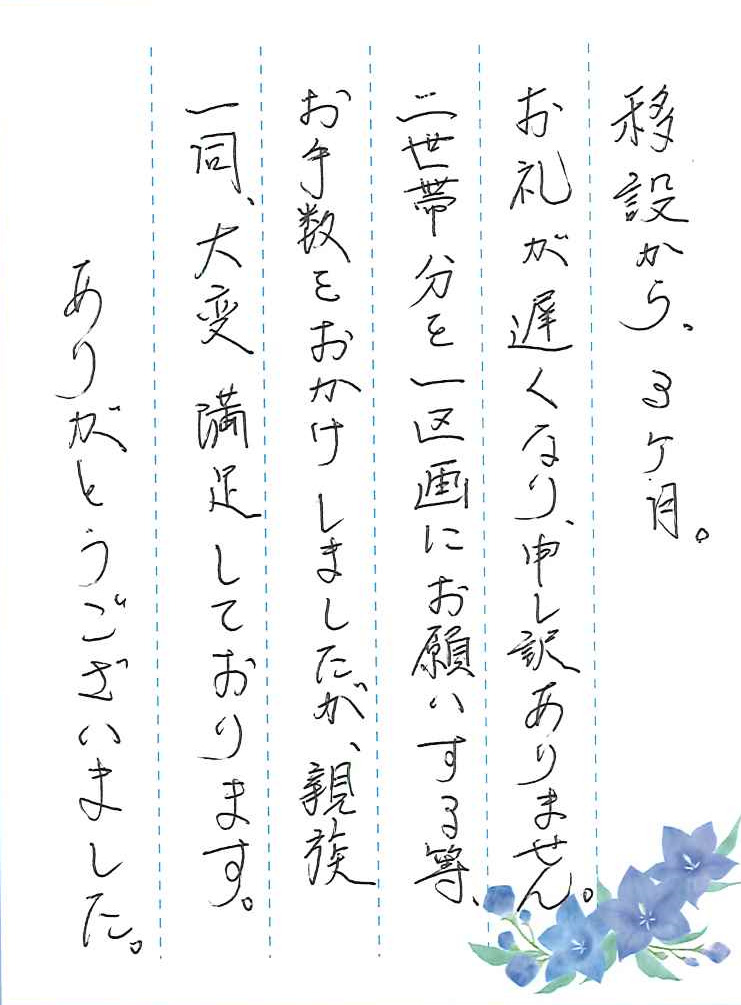 移設から、3ヶ月。
お礼が遅くなり、申し訳ありません。
二世帯分を一区画にお願いする等、
お手数をおかけしましたが、親族
一同、大変満足しております。
ありがとうございました。